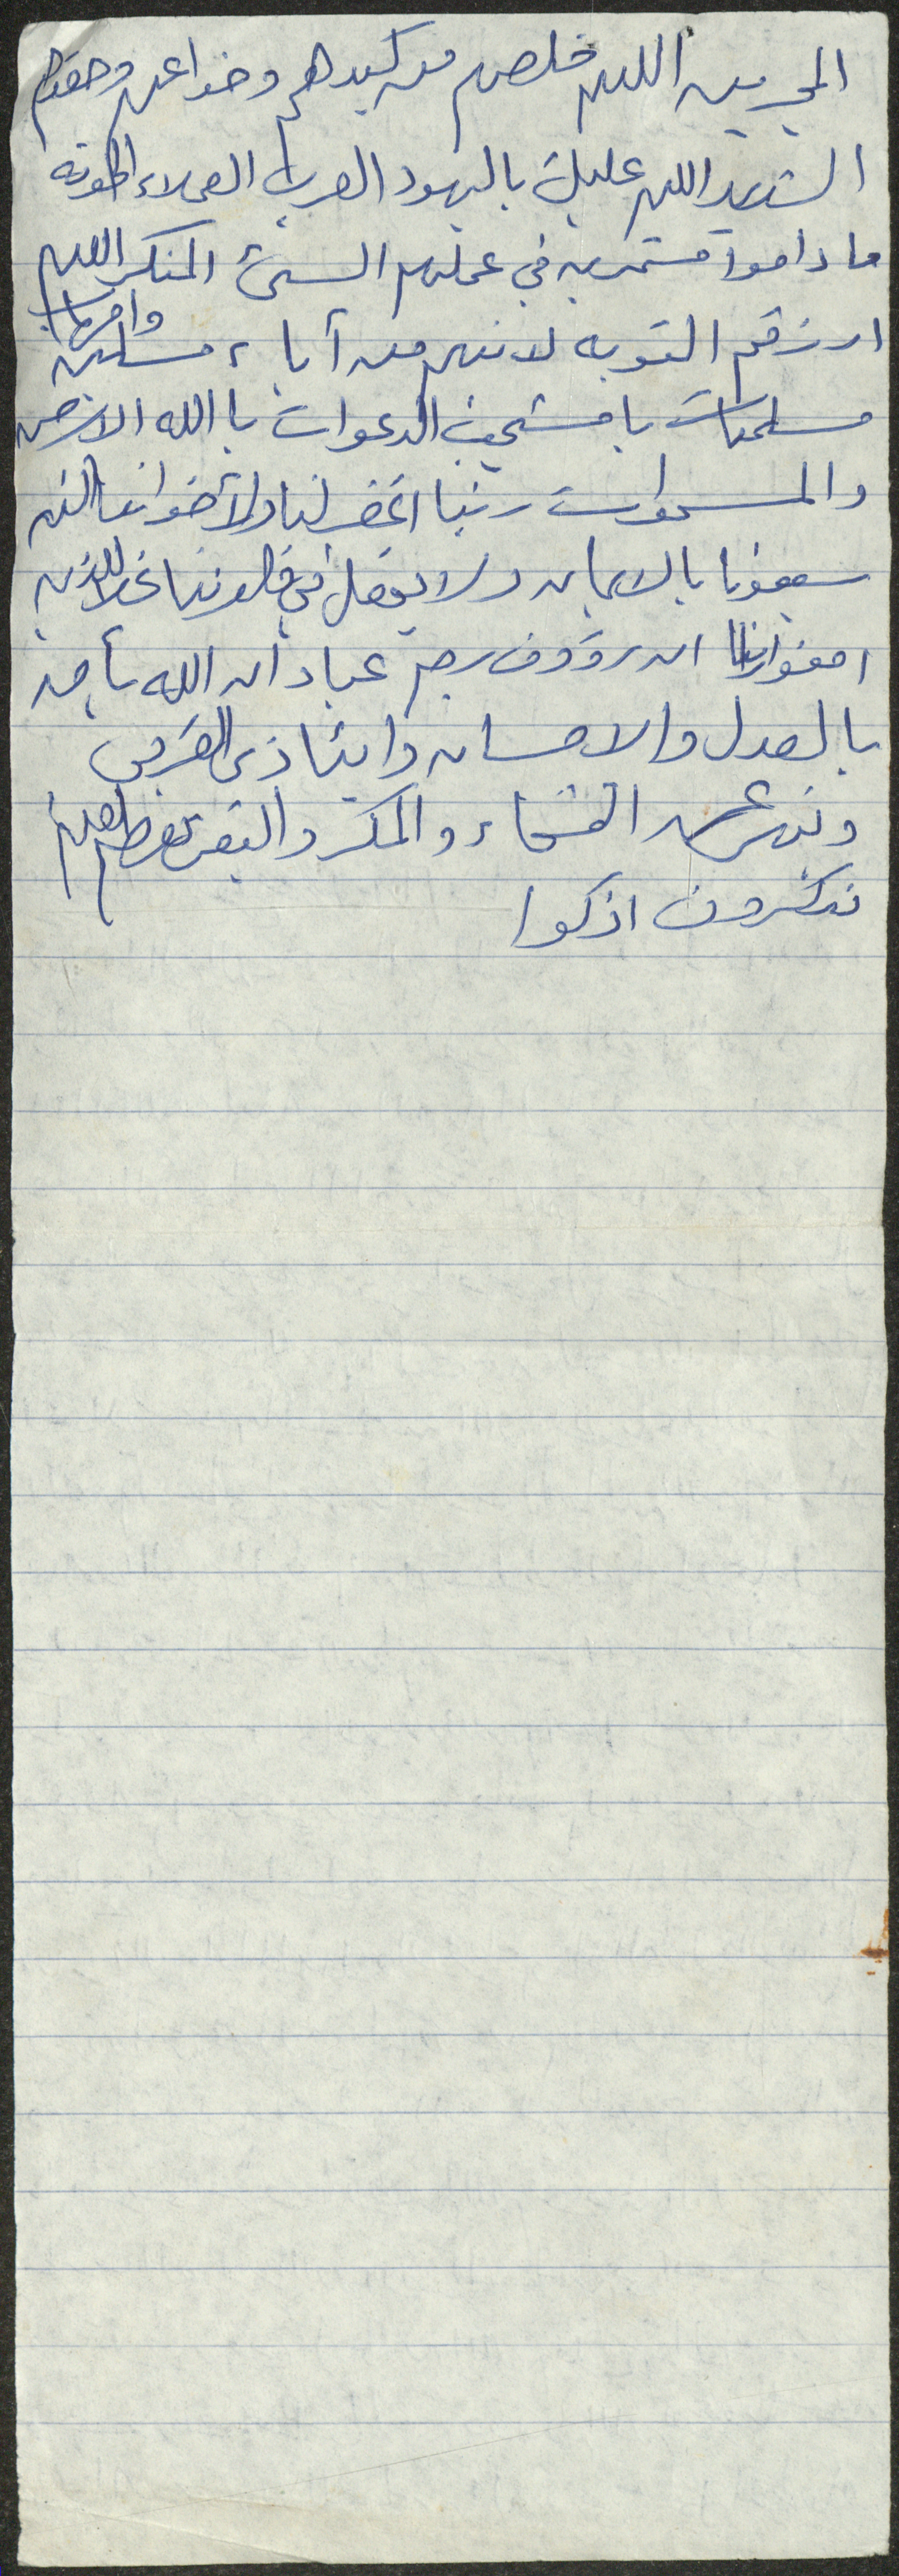 المجرمين اللهم خلصهم من كيدهم وخداعهم وحقدهم
الشديد اللهم عليك باليهود العرب العملاء الخونه
ما داموا مستمرين في عملهم السئ المنكر اللهم
ارزقهم التوبه لانهم من آباء مسلمين وامهات
مسلمات يا مستجيب الدعوات يا الله الارض
والسموات ربنا اغفر لنا ولأخواننا الذين
سبقونا بالايمان ولا تجعل في قلوبنا غلا للذين
امنوا ربنا انك رؤوف رحيم عباد الله ان الله يأمر
بالعدل والاحسان وايتا ذي القربى
وينهى عن الفحشاء والمنكر والبغى يعظكم لعلكم
تذكرون اذكروا